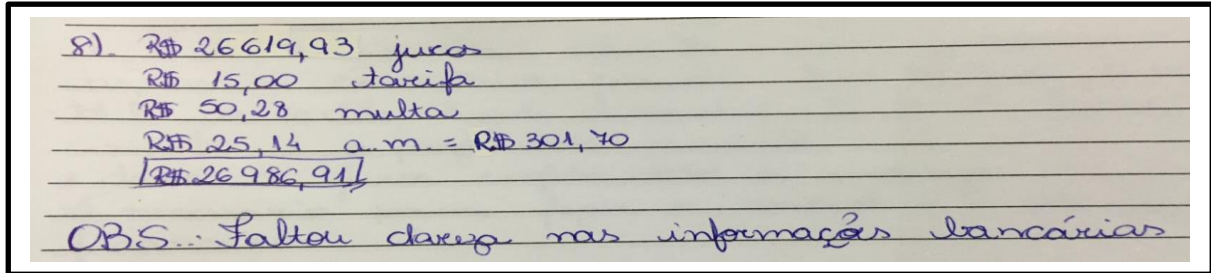 8). R$ 26619,93 juros
R$ 15,00 tarifa
R$ 50,28 multa
R$ 25,14 a.m. = R$ 301,70
R$ 26986,91
OBS.: Faltou clareza nas informações bancárias